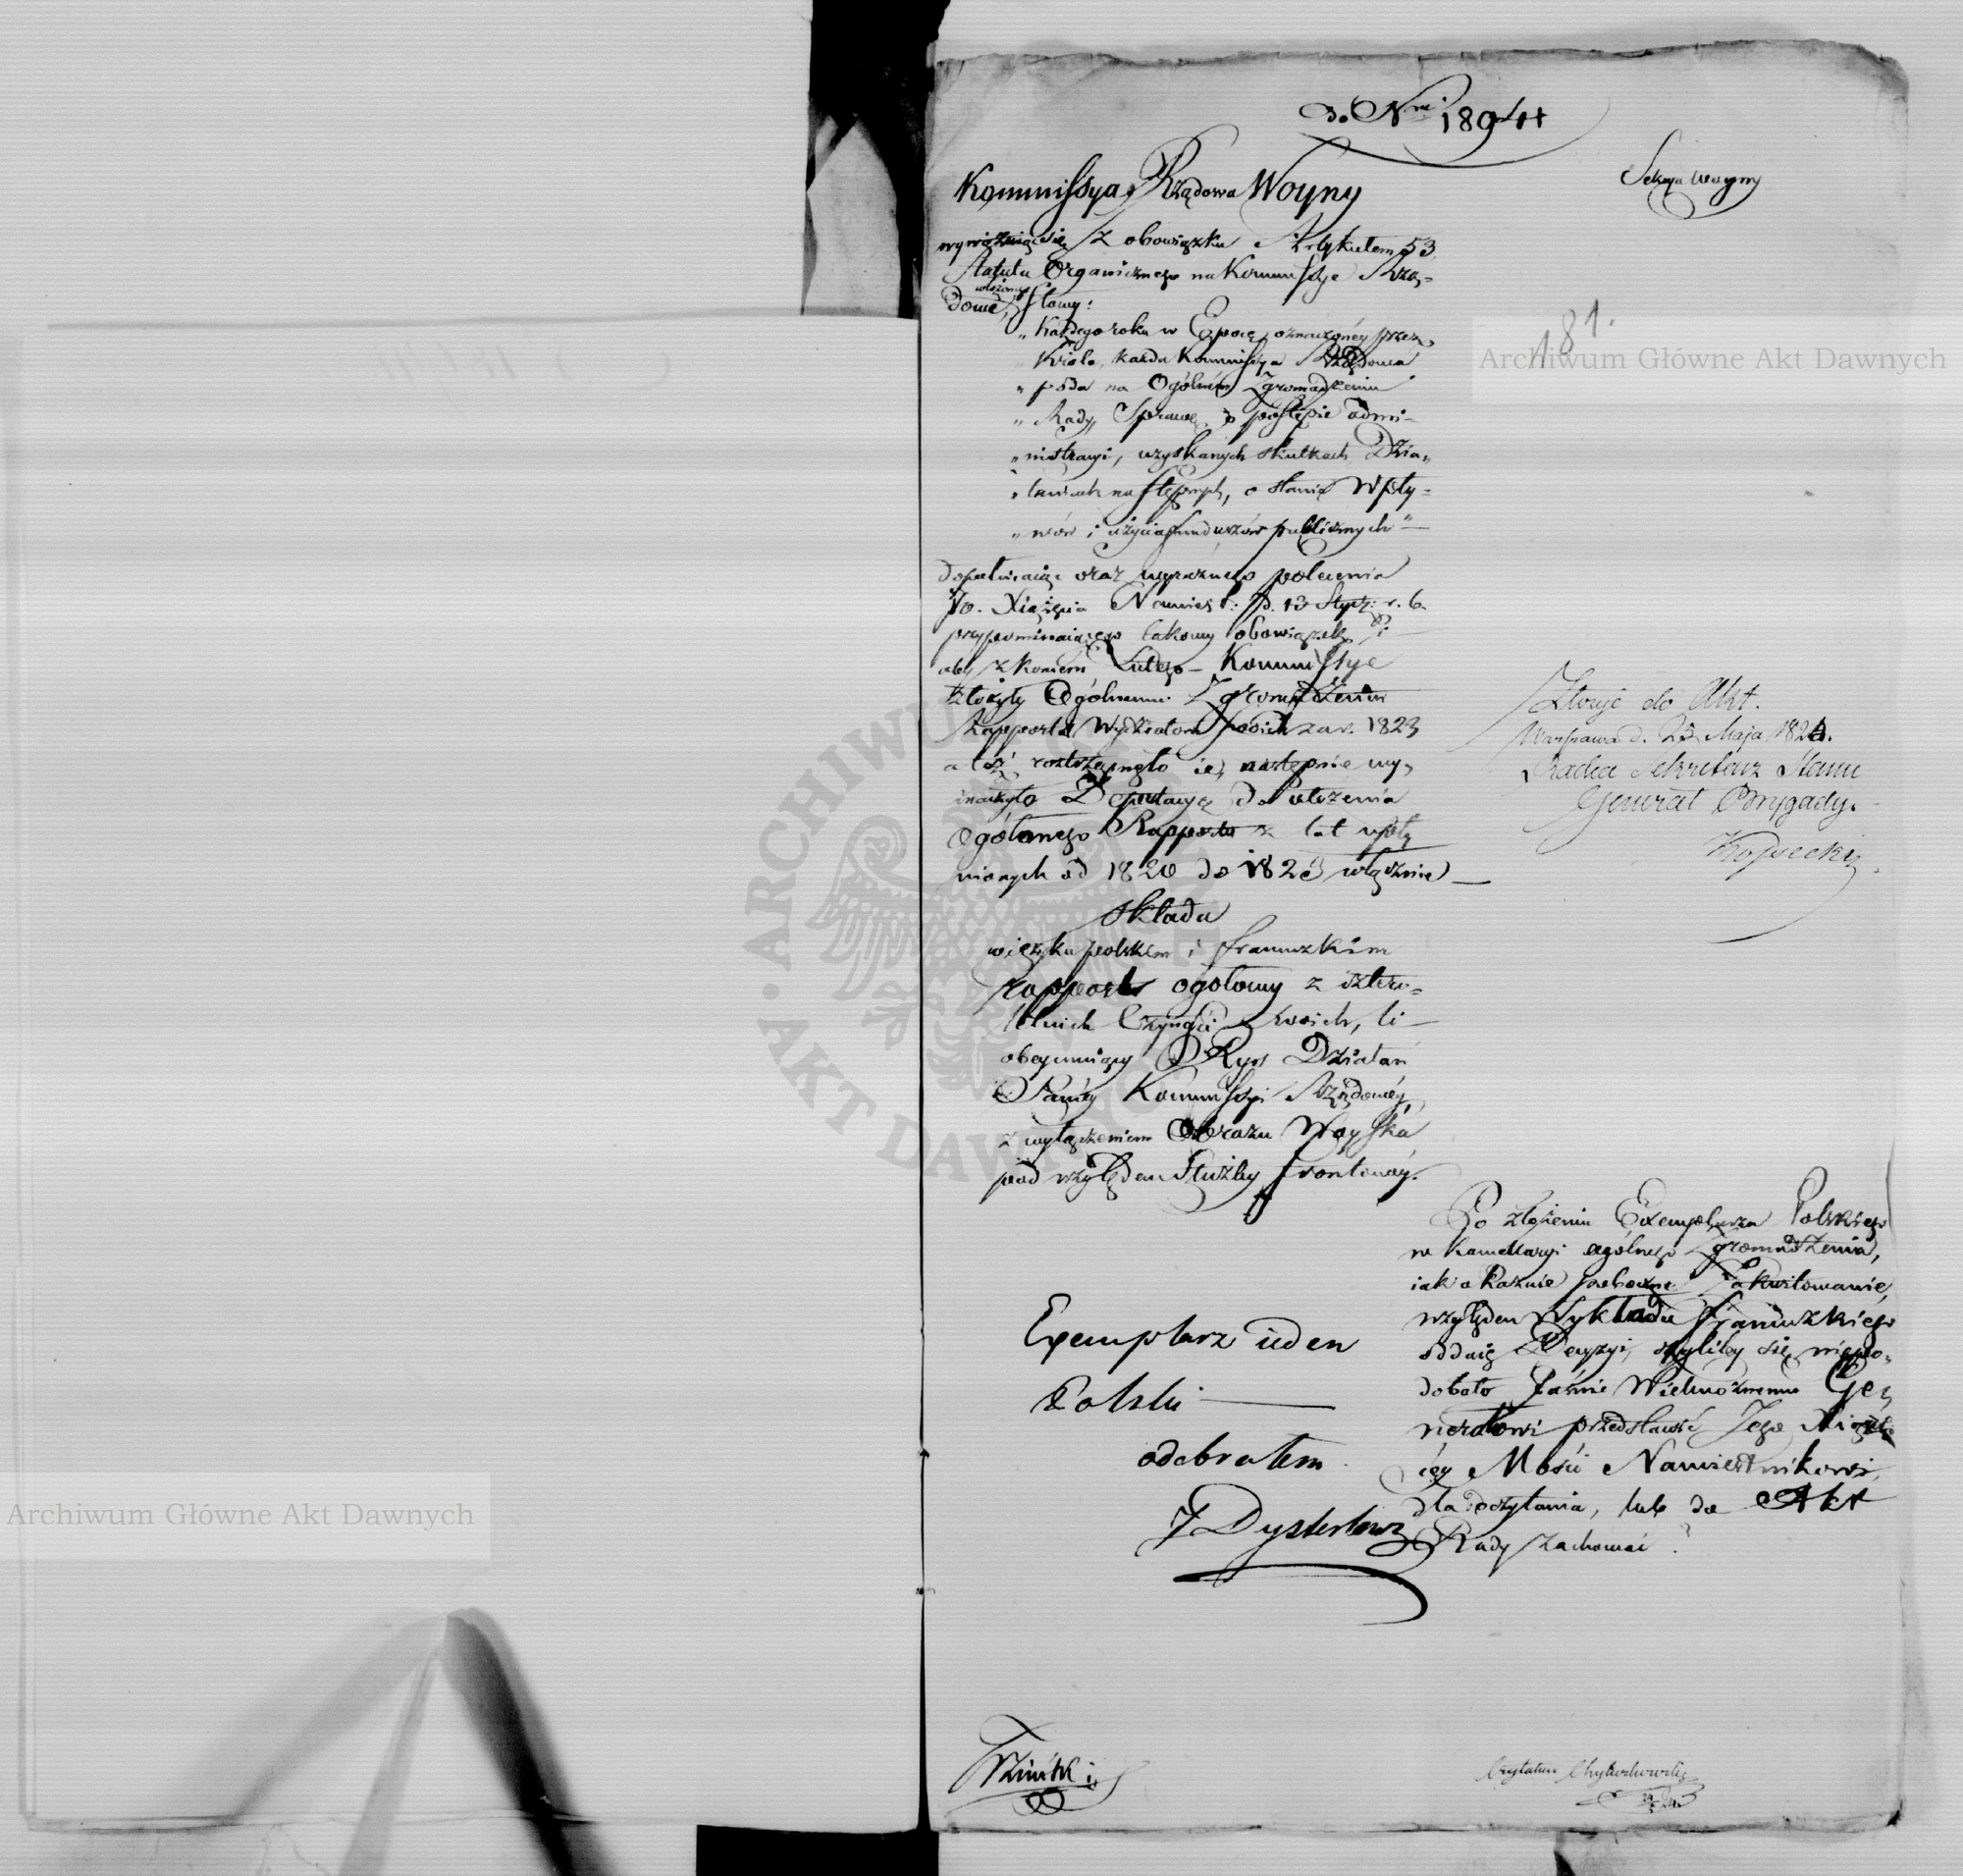 do Nru 18944
Sekcya Woyny
Kommissya Rządowa Woyny
wywiązuiąc się z obowiązku Artykułem 53
Statutu Organicznego na Kommissye Rzą-
dowe, włożonego słowy:
„ Każdego roku w Epoce, oznaczonéy przez
„ Króla, każda Kommissya Rządowa
„ poda na Ogólném Zgromadzeniu
„ Rady, Sprawę o postępie admi-
„ nistracyi, uzyskanych skutkach, Dzia-
„ łaniach następnych, o stanie Wpły-
„ wów i użycia funduszów publicznych" —
dopełniaiąc oraz wyraźnego polecenia
JO. Xiążęcia Namiest: d. 13 Stycz: r. b.
przypominaiącego takowy obowiązek, i
aby z końcem Lutego — Kommissye
złożyły Ogólnemu Zgromadzeniu
Rapporta Wydziałów swoich za r. 1823
a toż roztrząsnęło ie, następnie wy-
znaczyło Deputacyą do ułożenia
ogółowego Rapportu z lat upły
nionych od 1820 do 1823 włącznie —
składa
w ięzyku polskim i francuzkim
rapport ogółowy z cztero-
letnich Czynności swoich, ti —
obeymuiący Rys Działań
Saméy Kommissyi Rządowéy,
z wyłączeniem Obrazu Woyska
pod względem Służby frontowéy.
181.
Złożyć do Akt.
Warszawa d. 23 Maja 1824.
Radca Sekretarz Stanu
Generał Brygady.
Kossecki
Exemplarz ieden
Polski —
odebrałem
Po złożeniu Exemplarza Polskiego
w Kancellaryi ogólnego Zgromadzenia,
iak okazuie poboczne Zakwitowanie,
względem Wykładu francuzkiego
oddaię Decyzyi, czyliby się niepo-
dobało Jaśnie Wielmożnemu Ge-
nerałowi przedstawić Jego Xiążę
céy Mości Namiestnikowi
dla odczytania, lub do Akt
Rady zachować?
czytałem
Archiwum Główne Akt Dawnych
Archiwum Główne Akt Dawnych
ARCHIWUM GŁÓWNE · AKT DAWNYCH